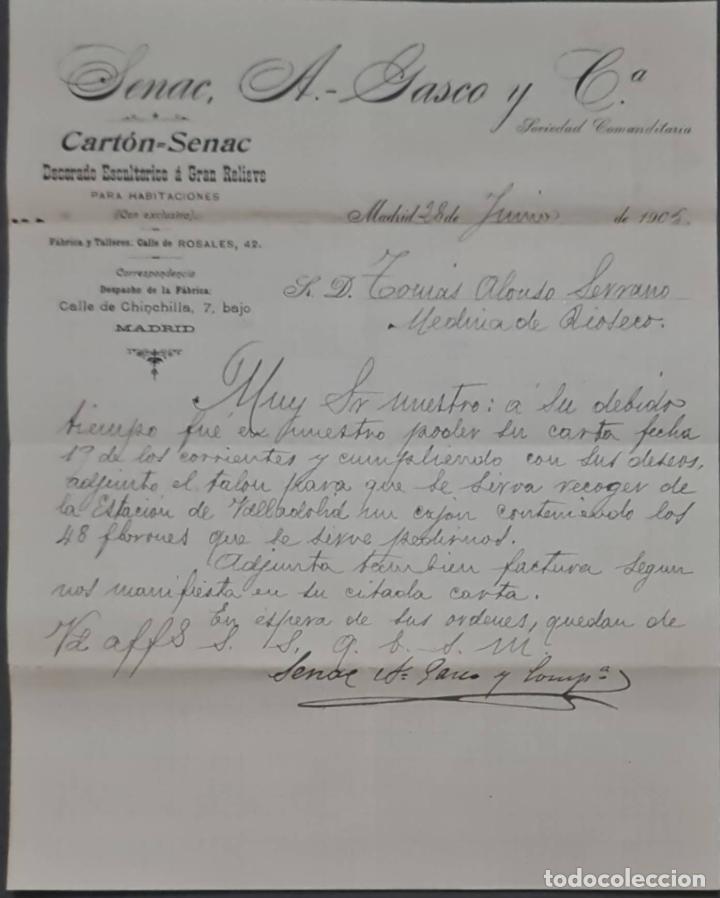 Senac, A.-Gasco y C.ª
Sociedad Comanditaria
Cartón-Senac
Decorado Escultórico á Gran Relieve
PARA HABITACIONES
(Con exclusiva).
Fábrica y Talleres: Calle de ROSALES, 42.
Correspondencia
Despacho de la Fábrica:
Calle de Chinchilla, 7, bajo
MADRID
Madrid 28 de Junio de 1905
Sr. D. Tomás Alonso Serrano
Medina de Rioseco.
Muy Sr nuestro: a su debido
tiempo fué en nuestro poder su carta fecha
17 de los corrientes y cumpliendo con sus deseos,
adjunto el talon para que se sirva recoger de
la Estación de Valladolid un cajon conteniendo los
48 florones que se sirve pedirnos.
Adjunta tambien factura segun
nos manifiesta en su citada carta.
En espera de sus ordenes, quedan de
Vd affs S. S. q. b. s. m.
Senac A= Gasco y Compª
todocoleccion